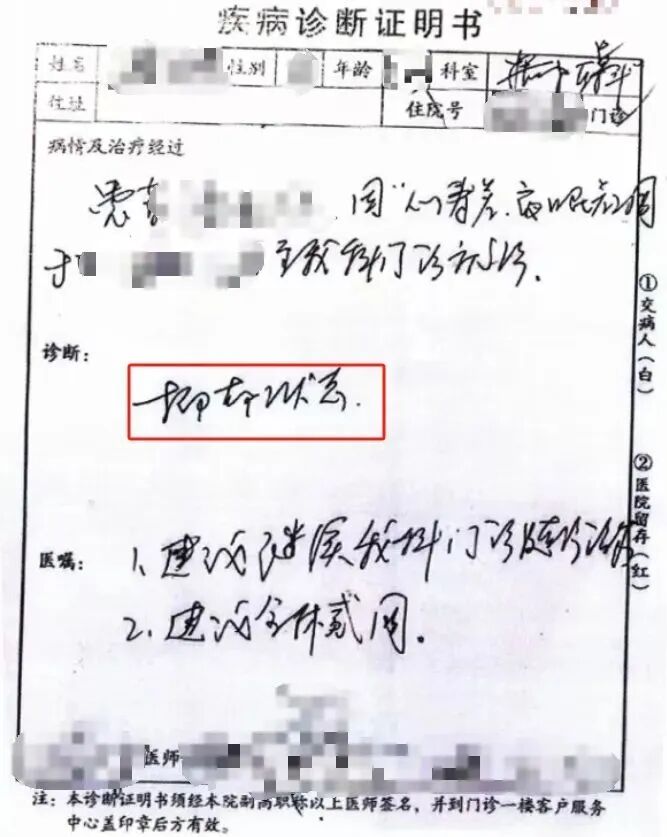 疾病诊断证明书
姓名 性别 年龄 科室
住址 住院号 门诊
病情及治疗经过
患者 因"心情差、夜眠差1周
于 至我科门诊就诊.
诊断:
抑郁状态.
医嘱: 1、建议继续我科门诊随诊治疗
2、建议全休贰周.
医师
注: 本诊断证明书须经本院副高职称以上医师签名, 并到门诊一楼客户服务
中心盖印章后方有效。
①交病人(白)
②医院留存(红)